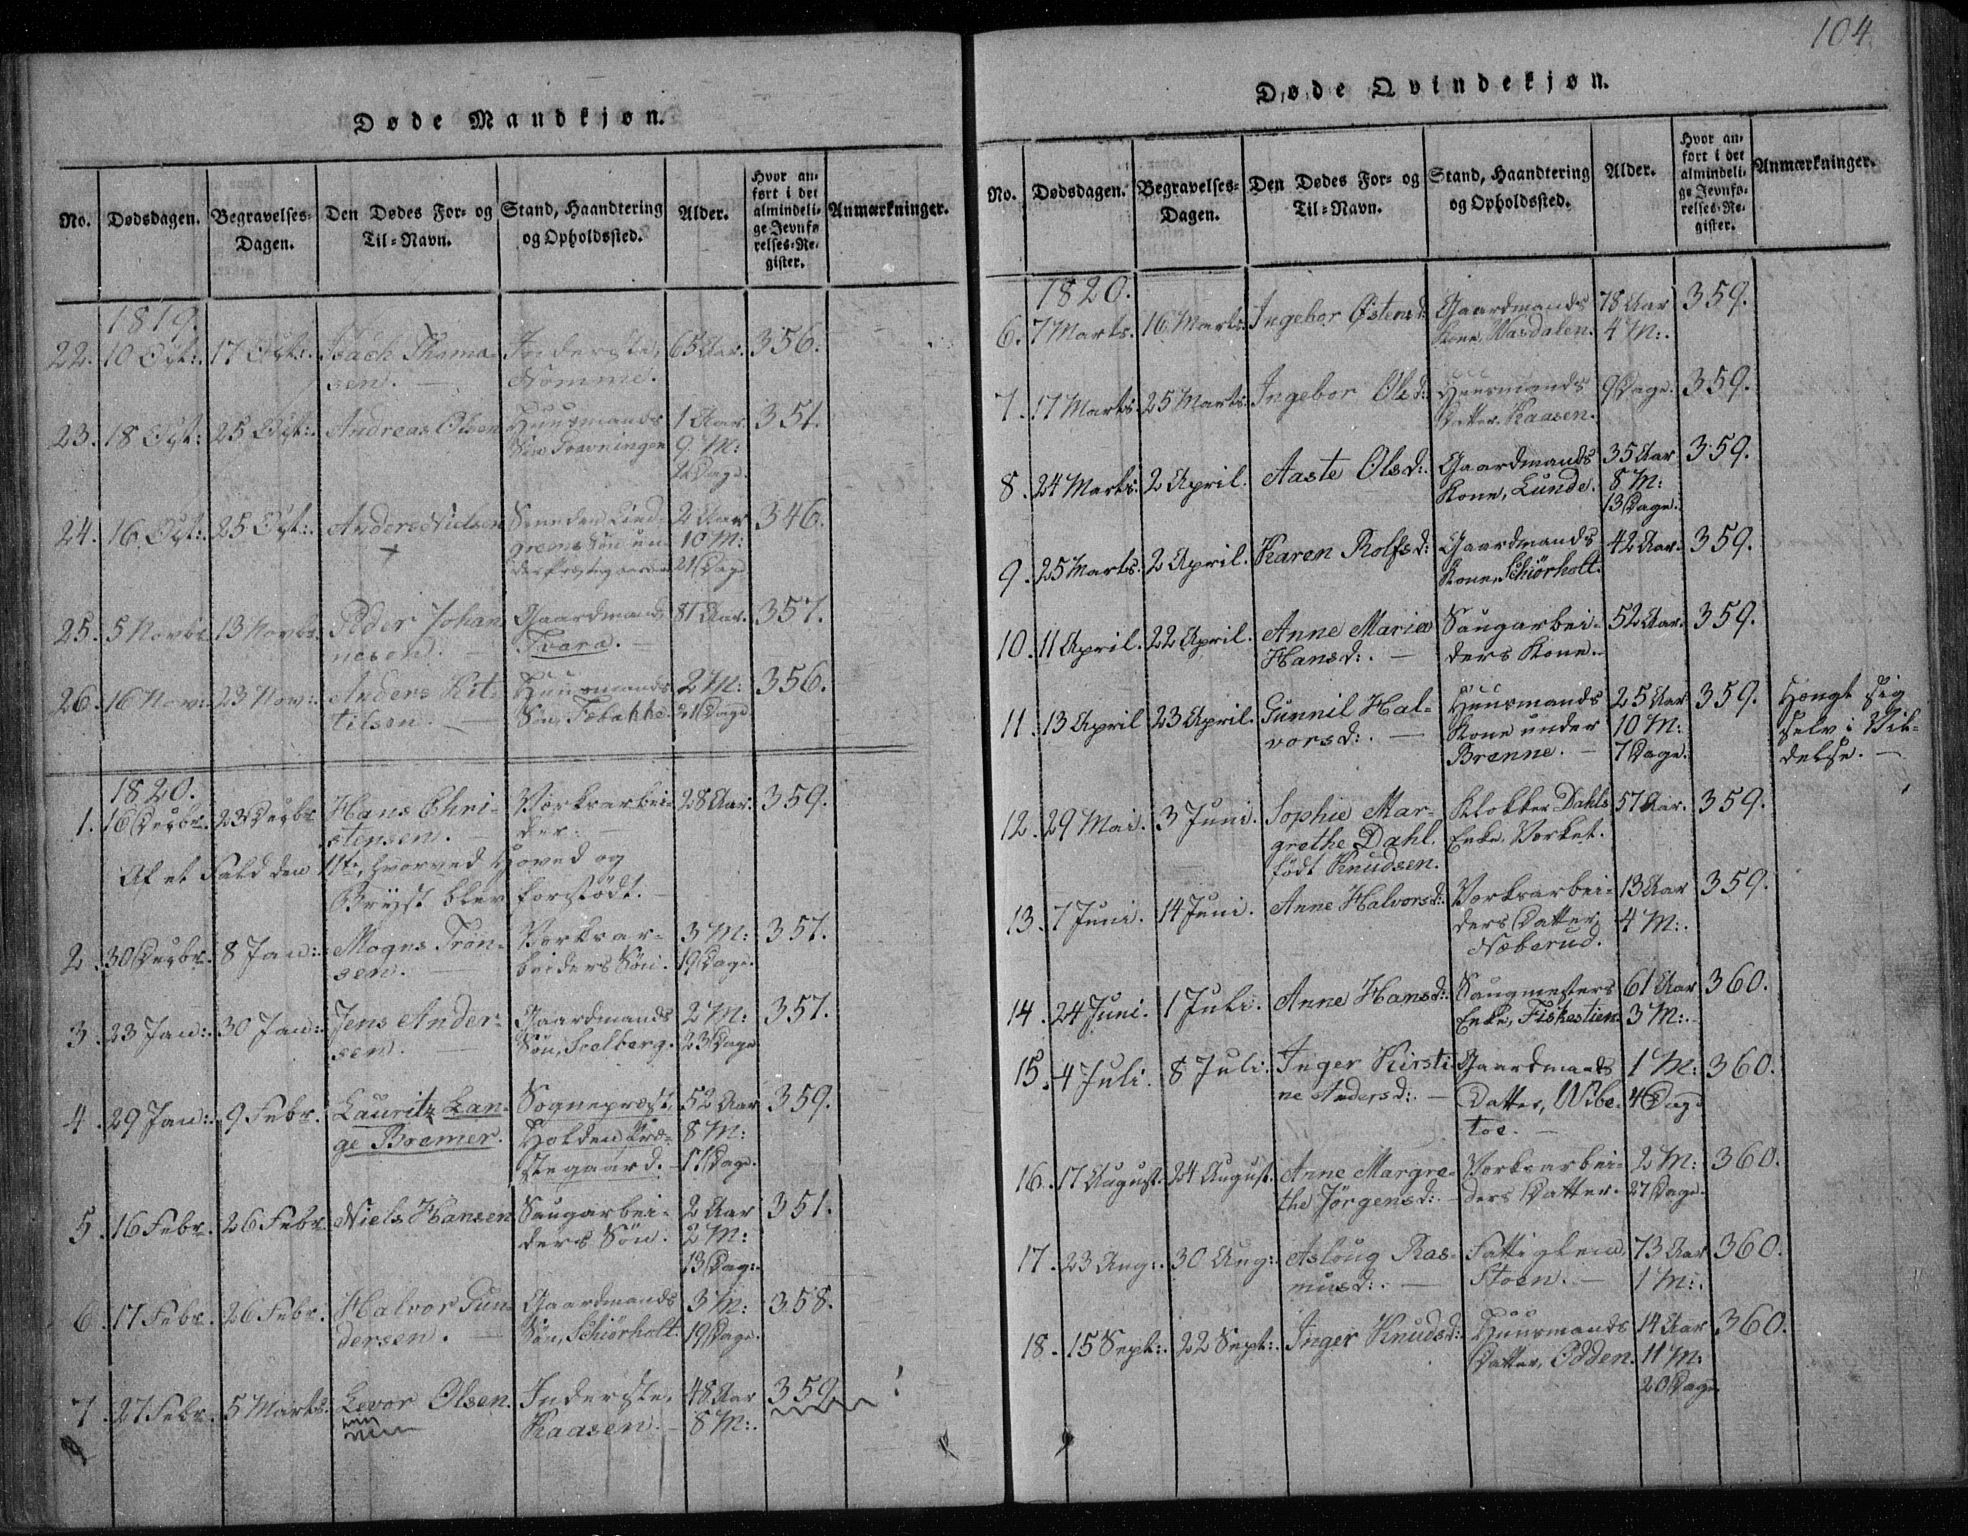 104
Døde Mandkjøn.
No. Dødsdagen. Begravelses-Dagen. Den Dødes For- og Til-Navn. Stand, Haandtering og Opholdssted. Alder. Hvor anført i det almindelige Jevnførelses-Register. Anmærkninger.
1819.
22. 10 Oct: 17 Oct: Isach Thoma- Inderste, 65 Aar. 356.
sen. — Nomme.
23. 18 Oct: 25 Oct: Andreas Olsen Huusmands 1 Aar 351.
Søn, Gravningen 9 M:
2 Dage.
24. 16 Oct: 25 Oct: Anders Nielsen 2 Aar 346.
grens Søn un- 10 M:
der Præstegaarden 21 Dage
25. 5 Novbr. 13 Novbr. Peder Johan- Gaardmand, 81 Aar. 357.
nesen. — Tvara. —
26. 16 Nov: 23 Nov: Anders Kit- Huusmands 2 M: 356.
tilsen. — Søn, 21 Dage
1820.
1. 16 Decbr. 23 Decbr. Hans Chri- Værksarbei- 28 Aar. 359.
stensen. — der. —
Af et Fald den 11te, hvorved Hoved og
Bryst blev forstødt. —
2. 30 Decbr. 8 Jan: Mogns Trøn- Værksar- 3 M: 357.
sen. — beiders Søn. 19 Dage.
3. 23 Jan: 30 Jan: Jens Ander- Gaardmands 2 M: 357.
sen. — Søn, Solberg. 23 Dage
4. 29 Jan: 9 Febr. Lauritz Lan- Sognepræst, 52 Aar 359.
ge Bremer. Holden Præ- 8 M:
stegaard. — 17 Dage.
5. 16 Febr. 26 Febr. Niels Hansen Saugarbei- 2 Aar 351.
ders Søn. 2 M:
13 Dag:
6. 17 Febr. 26 Febr. Halvor Gun- Gaardmands 3 M: 358.
dersen. — Søn, Schiørholt. 19 Dage.
7. 27 Febr. 5 Marts. Levor Olsen. Inderste, 48 Aar 359
Kaasen. — 8 M:
Døde Qvindekjøn.
No. Dødsdagen. Begravelses-Dagen. Den Dødes For- og Til-Navn. Stand, Haandtering og Opholdssted. Alder. Hvor anført i det almindelige Jevnførelses-Register. Anmærkninger.
1820.
6. 7 Marts. 16 Marts. Ingebor Østensd: Gaardmands 78 Aar 359.
Kone, Vasdalen. 4 M:
7. 17 Marts. 25 Marts. Ingebor Olsd: Huusmands 9 Dage. 359.
Datter, Kaasen.
8. 24 Marts. 2 April. Aaste Olsd: Gaardmands 35 Aar 359.
Kone, Lunde. 8 M:
13 Dage.
9. 25 Marts. 2 April. Karen Rolfsd: Gaardmands 42 Aar. 359.
Kone, Schiørholt.
10. 11 April. 22 April. Anne Maria Saugarbei- 52 Aar. 359.
Hansd: — ders Kone. —
11. 13 April 23 April. Gunnil Hal- Huusmands 25 Aar 359. Hængt sig
vorsd: — Kone under 10 M: selv i Vil-
Brenne. — 7 Dage. delse. —
12. 29 Mai. 3 Juni. Sophie Mar- Klokker Dahls 57 Aar. 359.
grethe Dahl. Enke, Værket.
født Knudsen.
13. 7 Juni. 14 Juni. Anne Halvorsd: Værksarbei- 13 Aar 359.
ders Datter, 4 M:
Næberud.
14. 24 Juni. 1 Juli. Anne Hansd: Saugmesters 61 Aar 360.
Enke, Fiskestien. 3 M:
15. 4 Juli. 8 Juli. Inger Kirsti- Gaardmands 1 M: 360.
ne Andersd: — Datter, Wibe- 4 Dage
toe. —
16. 17 August. 24 August. Anne Margre- Værksarbei- 2 M: 360.
the Jørgensd: — ders Datter. 27 Dage.
17. 23 Aug: 30 Aug: Asloug Ras- Fattiglem, 73 Aar 360.
musd: — Stoen. — 1 M:
18. 15 Sept: 22 Sept: Inger Knudsd: Huusmands 14 Aar 360.
Datter, Odden. 11 M:
20 Dage